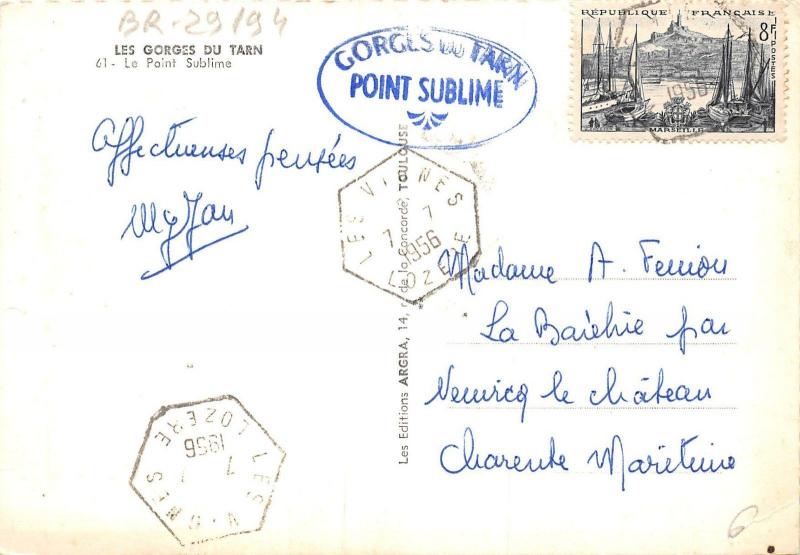 BR-29/94
LES GORGES DU TARN
61 - Le Point Sublime
GORGES DU TARN
POINT SUBLIME
RÉPUBLIQUE FRANÇAISE
8F
POSTES
1956
MARSEILLE
Affectueuses pensées
LES VIGNES
7 7
1956
LOZERE
Les Editions ARGRA, 14, r. de la Concorde, TOULOUSE
Madame A.
La par
le château
Charente Maritime
LES VIGNES
7 7
1956
LOZERE
6